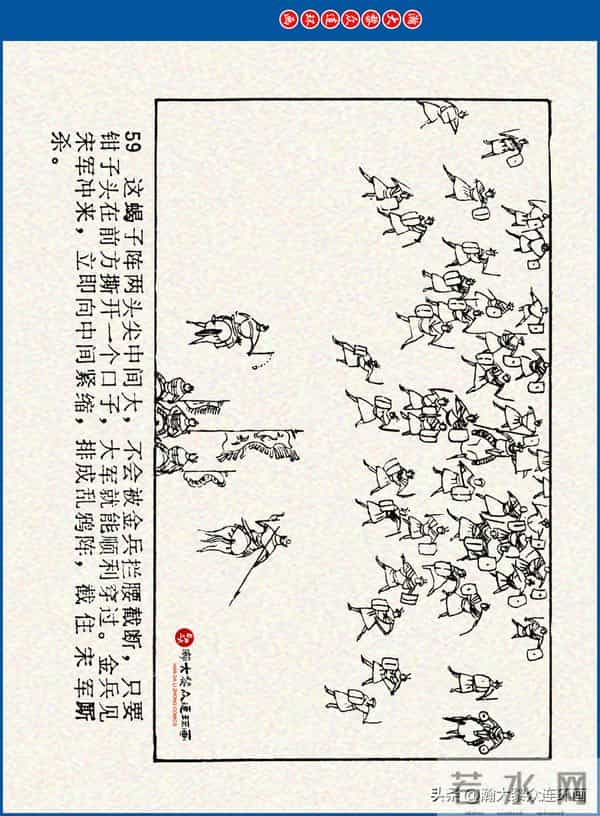 瀚大黎众连环画
59 这蝎子阵两头尖中间大，不会被金兵拦腰截断，只要
钳子头在前方撕开一个口子，大军就能顺利穿过。金兵见
宋军冲来，立即向中间紧缩，排成乱鸦阵，截住宋军厮
杀。
瀚大黎众连环画
HAN DA LI ZHONG COMICS
若水网
头条 @瀚大黎众连环画